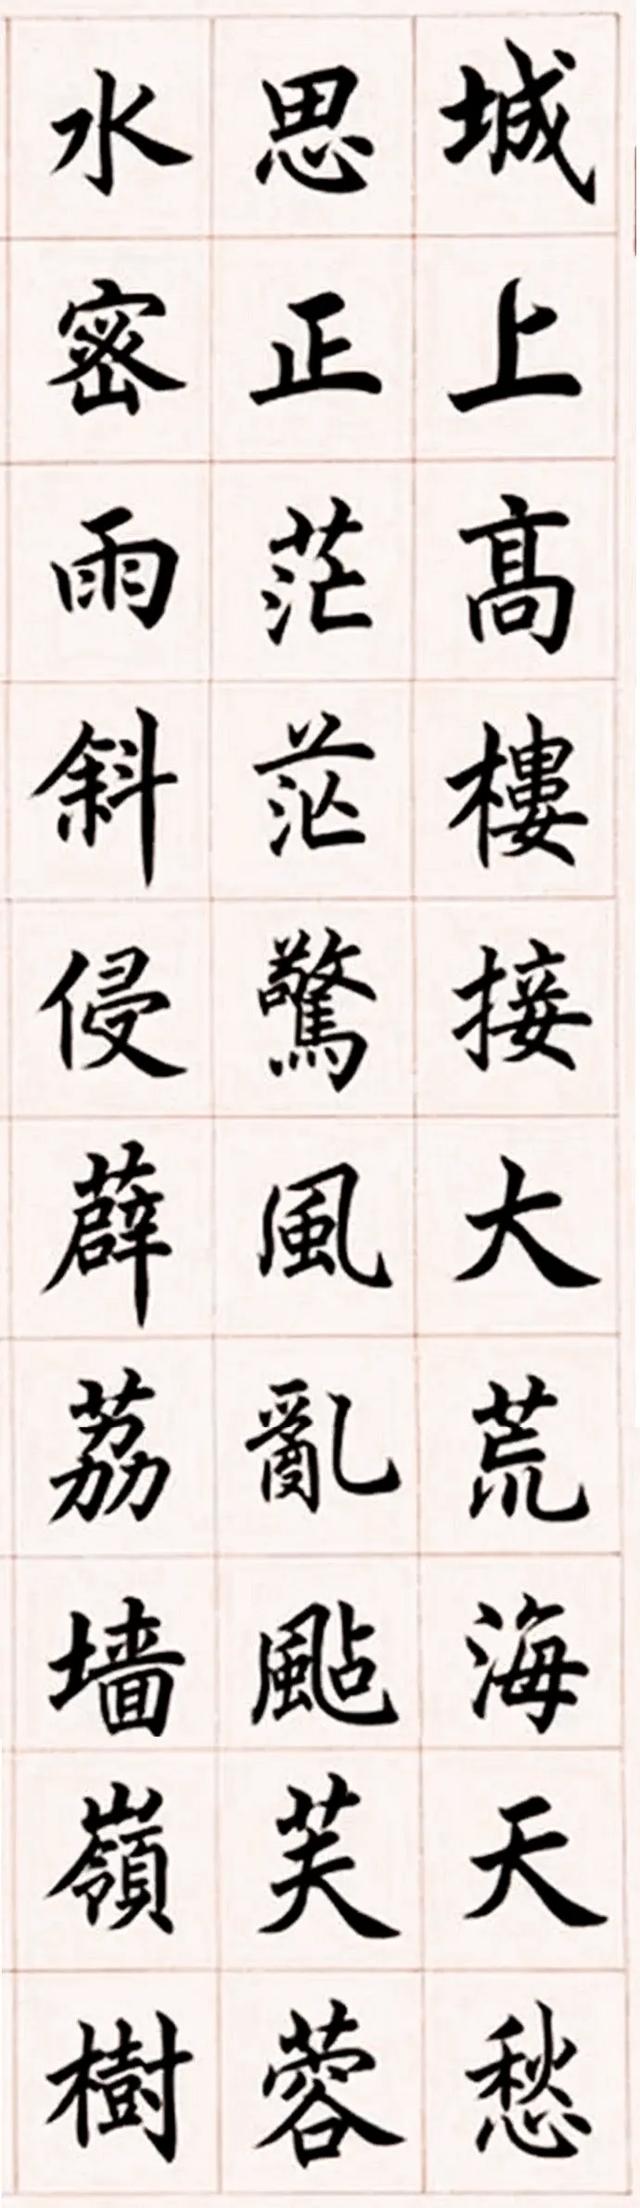 城上高樓接大荒海天愁
思正茫茫驚風亂颭芙蓉
水密雨斜侵薜荔墙嶺樹